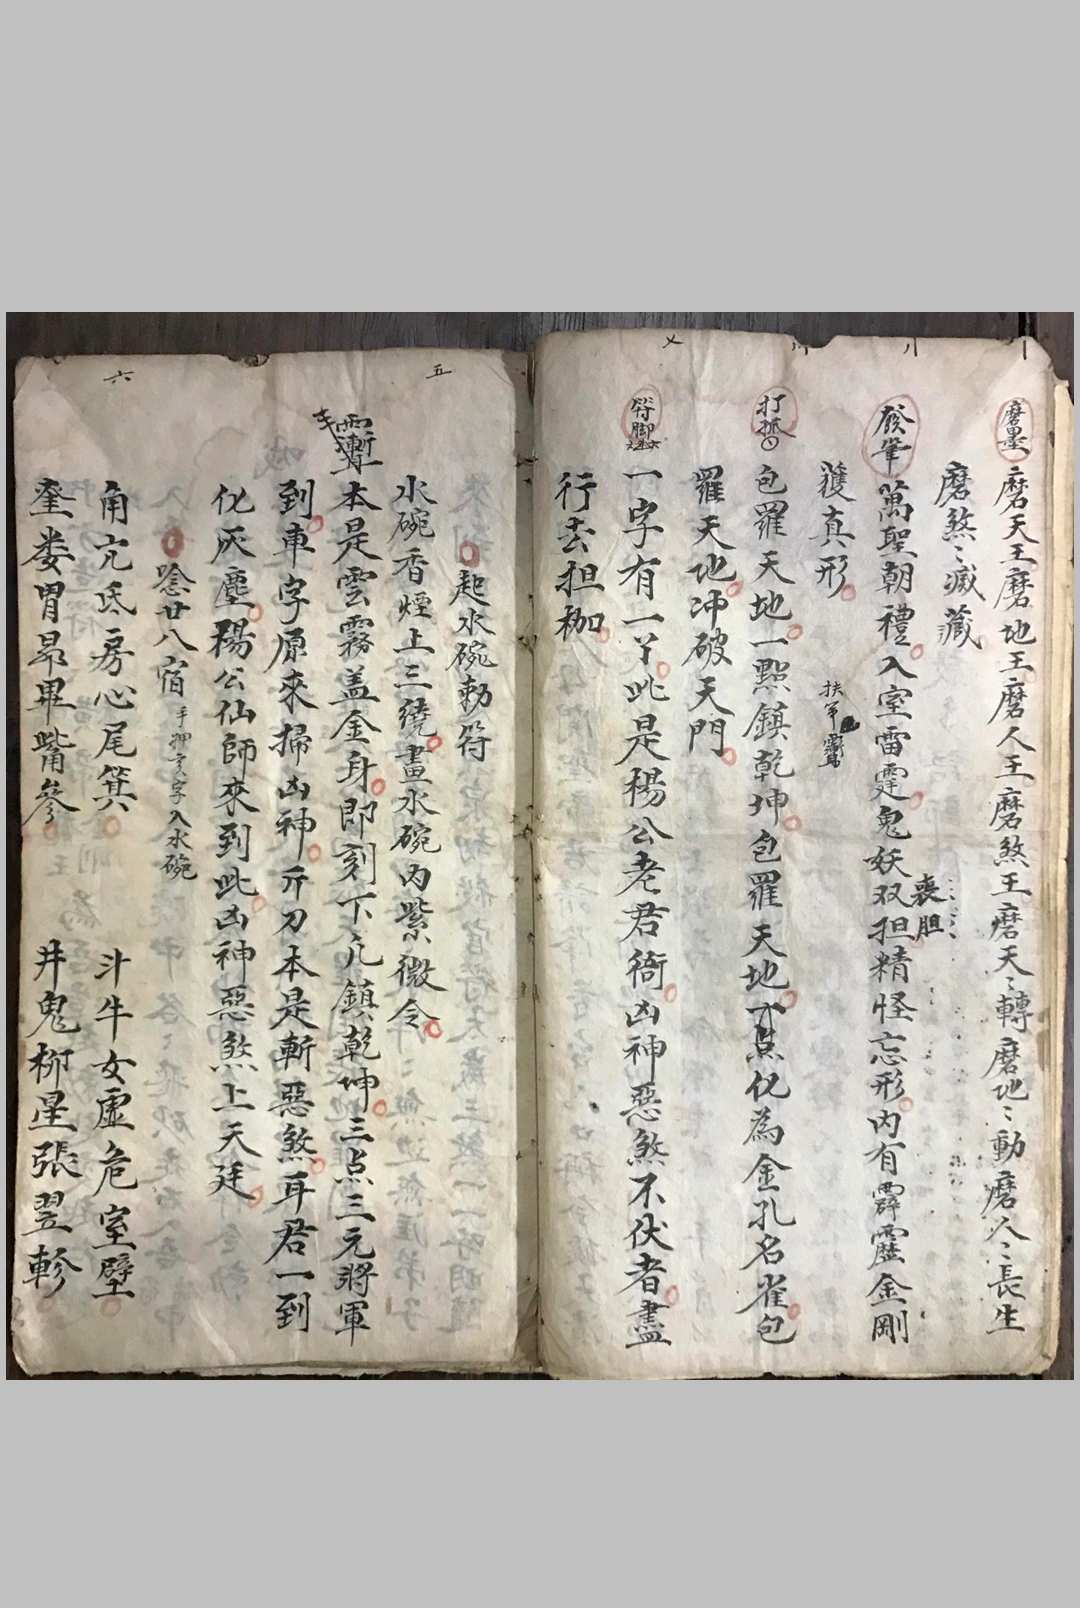 磨墨 磨天王磨地王磨人王磨煞王磨天〻轉磨地〻動磨人〻長生
磨煞〻滅藏
發筆 萬聖朝禮入室雷霆鬼妖双担精怪忘形内有霹靂金剛
喪胆
獲真形
打抵 包羅天地一點鎮乾坤包羅天地一點化為金孔名雀包
羅天地冲破天門
符脚 一字有一丫此是楊公老君銜凶神惡煞不伏者盡
行去担枷
五
起水碗勅符
水碗香煙上三繞畫水碗内紫微令
本是雲霧盖金身即刻下凡鎮乾坤三点三元將軍
到車字原來掃凶神斤刀本是斬惡煞耳君一到
化灰塵楊公仙師來到此凶神惡煞上天廷
唸廿八宿 手押字入水碗
六
角亢氐房心尾箕 斗牛女虛危室壁
奎娄胃昴畢觜參 井鬼柳星張翌軫